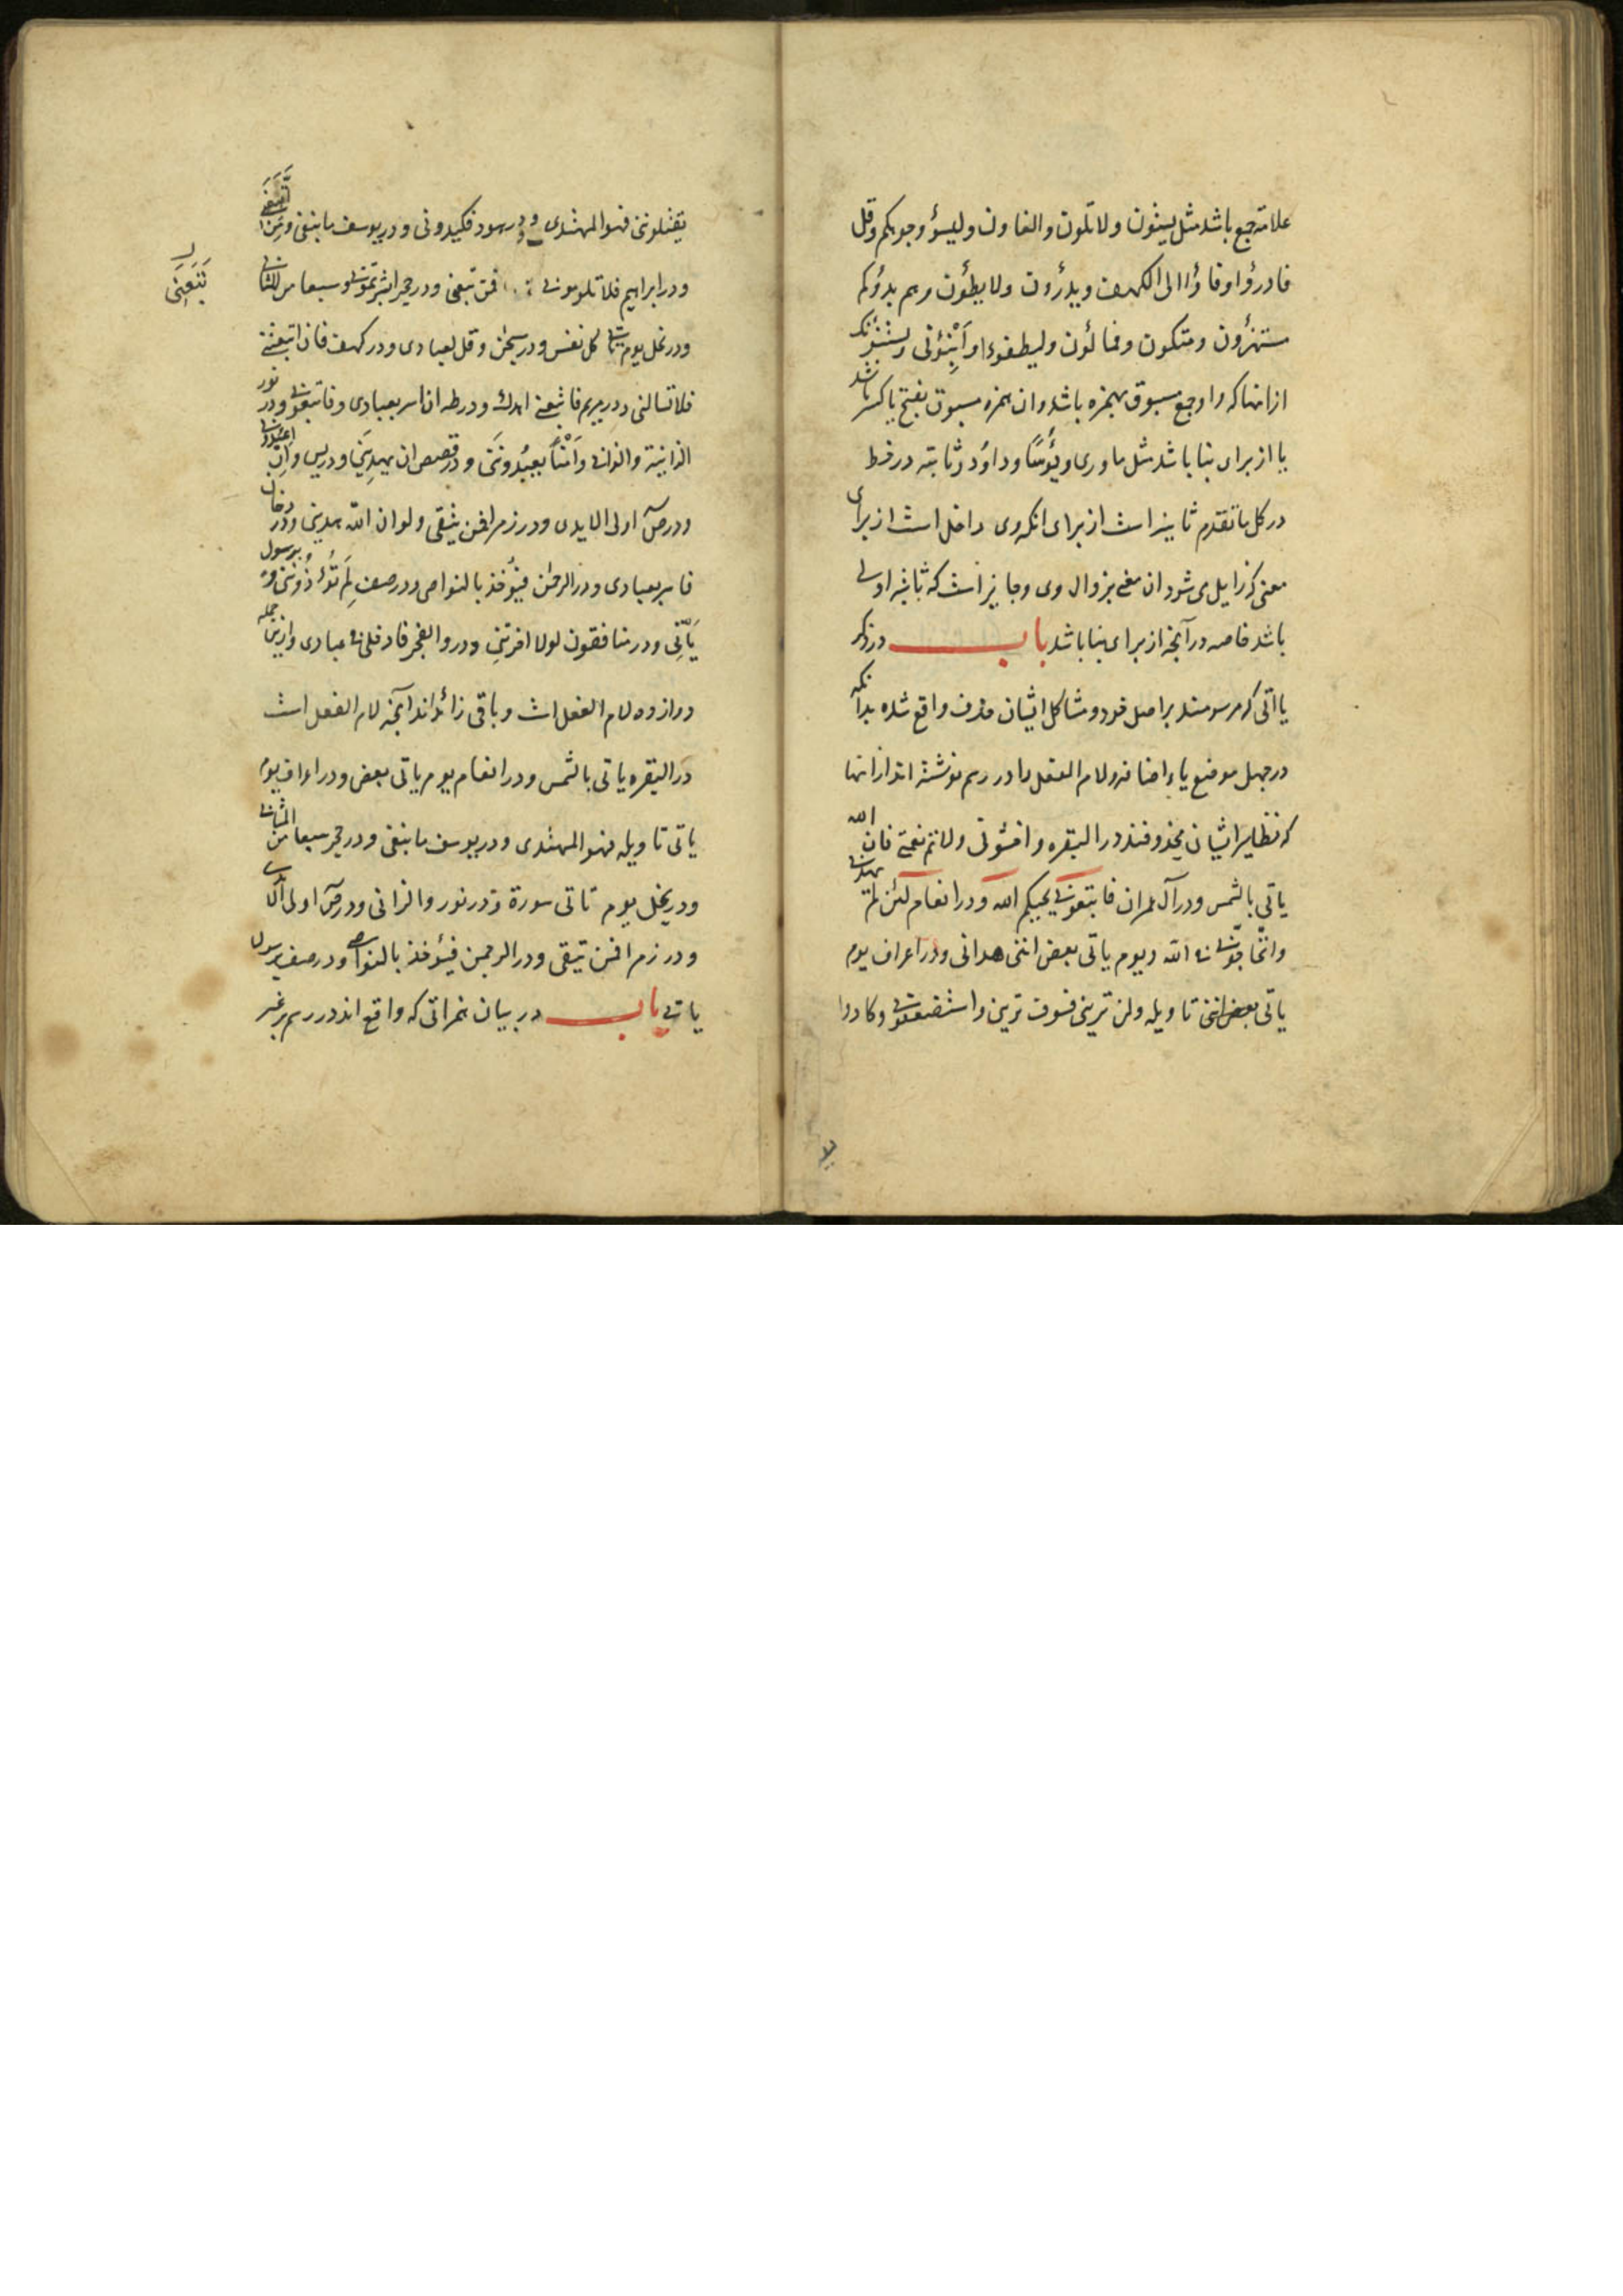 علامة جمع باشد مثل یستون ولا تلون والغاون ولیسؤ وجوهکم وقل
فادرؤا وفاؤا الی الکهف ویدرؤن ولا یطؤن وهم بدؤکم
مستهزؤن ومتکون وفمالؤن ولیطفوءا او اَنْبِؤنی ویستنبؤنک
از انها که واو جمع مسبوق بهمزه باشد وان همزه مسبوق بفتح یا کسر باشد
یا از برای بنا باشد مثل ماوری ویؤسًا وداؤد وثابته در خط
در کل ما تقدم ثانیه است از برای انکه وی داخل است از برای
معنی که زایل می شود ان معنی بزوال وی وجایز است که ثانیه اولی
باشد خاصه در آنچه از برای بنا باشد باب در ذکر
یااتی که مرسومند بر اصل خود ومشاکل ایشان حذف واقع شده بدانکه
در چهل موضع یاء اضافه ولام الفعل را در رسم نوشته اند از انها
که نظایر ایشان محذوفند در البقره واخشونی ولاتم نعمتی فان الله
یاتی بالشمس ودر آل عمران فاتبعونی یحببکم الله ودر انعام لئن لم یهدنی
واتحاجونی فی الله ویوم یاتی بعض اننی هدانی ودر اعراف یوم
یاتی بعض اننی تاویله ولن ترینی فسوف ترینی واستضعفونی وکادوا
یقتلوننی فهو المهتدی ودر هود فکیدونی ودر یوسف ما نبغی ومن اتبعنی
ودر ابراهیم فلا تلومونی فمن تبعنی ودر حجر ابشرتمونی وسبعا من المثانی
ودر نحل یوم تاتی کل نفس ودر سبحن وقل لعبادی ودر کهف فان اتبعتنی
فلا تسالنی ودر مریم فاتبعنی اهدک ودر طه ان اسر بعبادی وفاتبعونی ودر نور
الزانیة والزانی واَمْناً یعبُدوننی ودر قصص ان یهدِیَنی ودر یس وان اعبدونی
ودر صٓ اولی الایدی ودر زمر افمن یتقی ولو ان الله هدینی ودر دخان
فاسر بعبادی ودر الرحمن فیؤخذ بالنواصی ودر صف لِمَ تُؤذُونَنی وبرسول
یَأتِی ودر منافقون لولا اخرتنی ودر والفجر فادخلی فی عبادی وازین جمله
دوازده لام الفعل است وباقی زائد اند آنچه لام الفعل است
در البقره یاتی بالشمس ودر انعام یوم یاتی بعض ودر اعراف یوم
یاتی تاویله فهو المهتدی ودر یوسف ما نبغی ودر حجر سبعا من المثانی
ودر نحل یوم تاتی سورة ودر نور والزانی ودر صٓ اولی الایدی
ودر زمر افمن یتقی ودر الرحمن فیؤخذ بالنواصی ودر صف برسول
یاتی باب در بیان همزاتی که واقع اند در رسم بر غیر